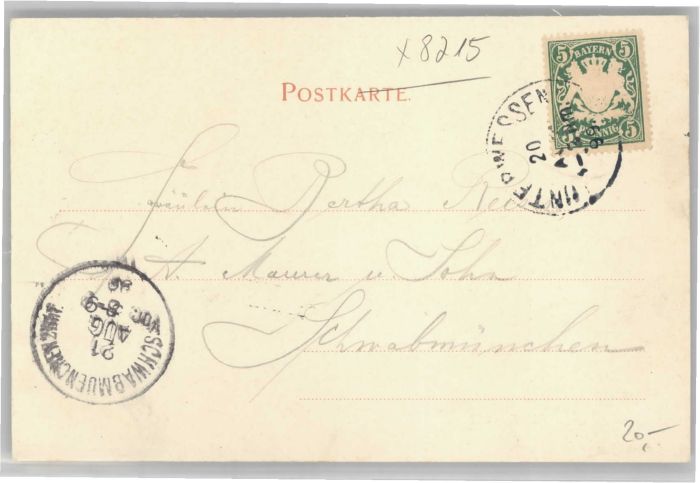 x 8215
POSTKARTE.
5 BAYERN 5
5 PFENNIG 5
UNTERWESSEN
20
Fräulein Bertha
A. Maurer u Sohn
Schwabmünchen
SCHWABMUENCHEN
21
AUG
8-9
Vor.
98
20,-